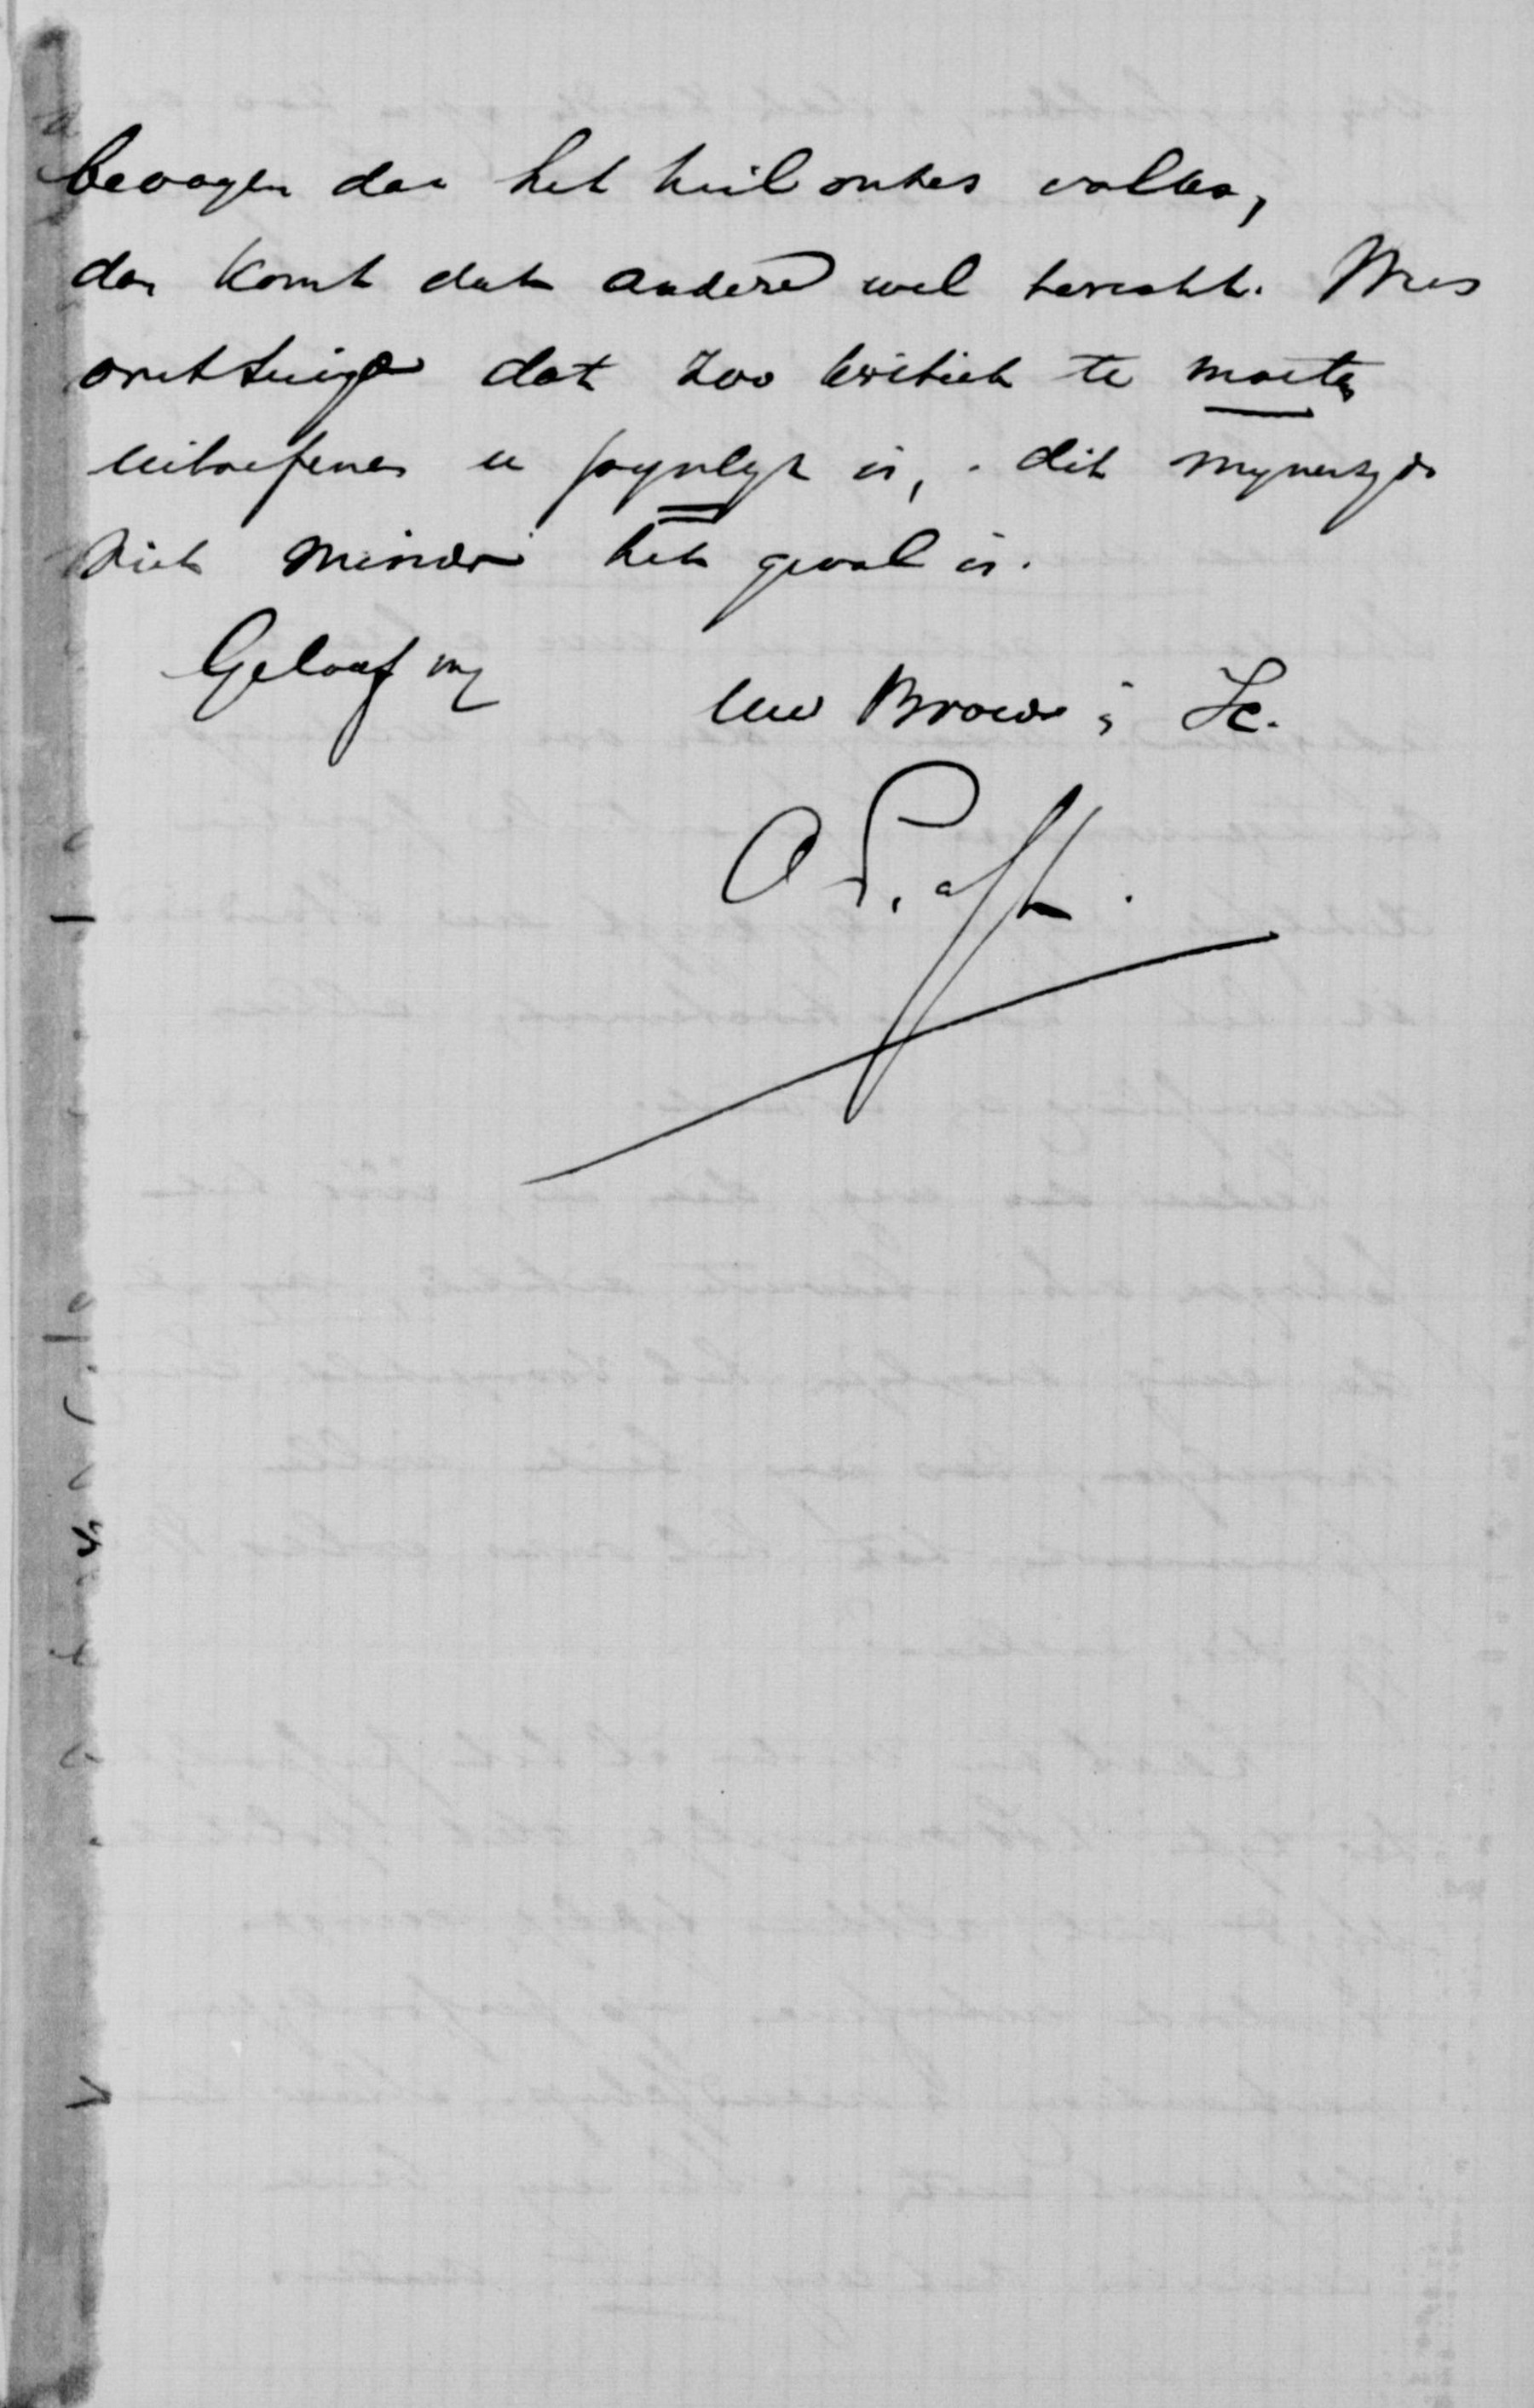 bevogen dan het heil onzes volks,
dan komt dat andere wel terecht. Wees
overtuigd dat zoo kritiek te moeten
uitoefenen u pynlyk is, dit mynerzyds
niet minder het geval is.
Geloof my
Uw Broeder i/ Xc.